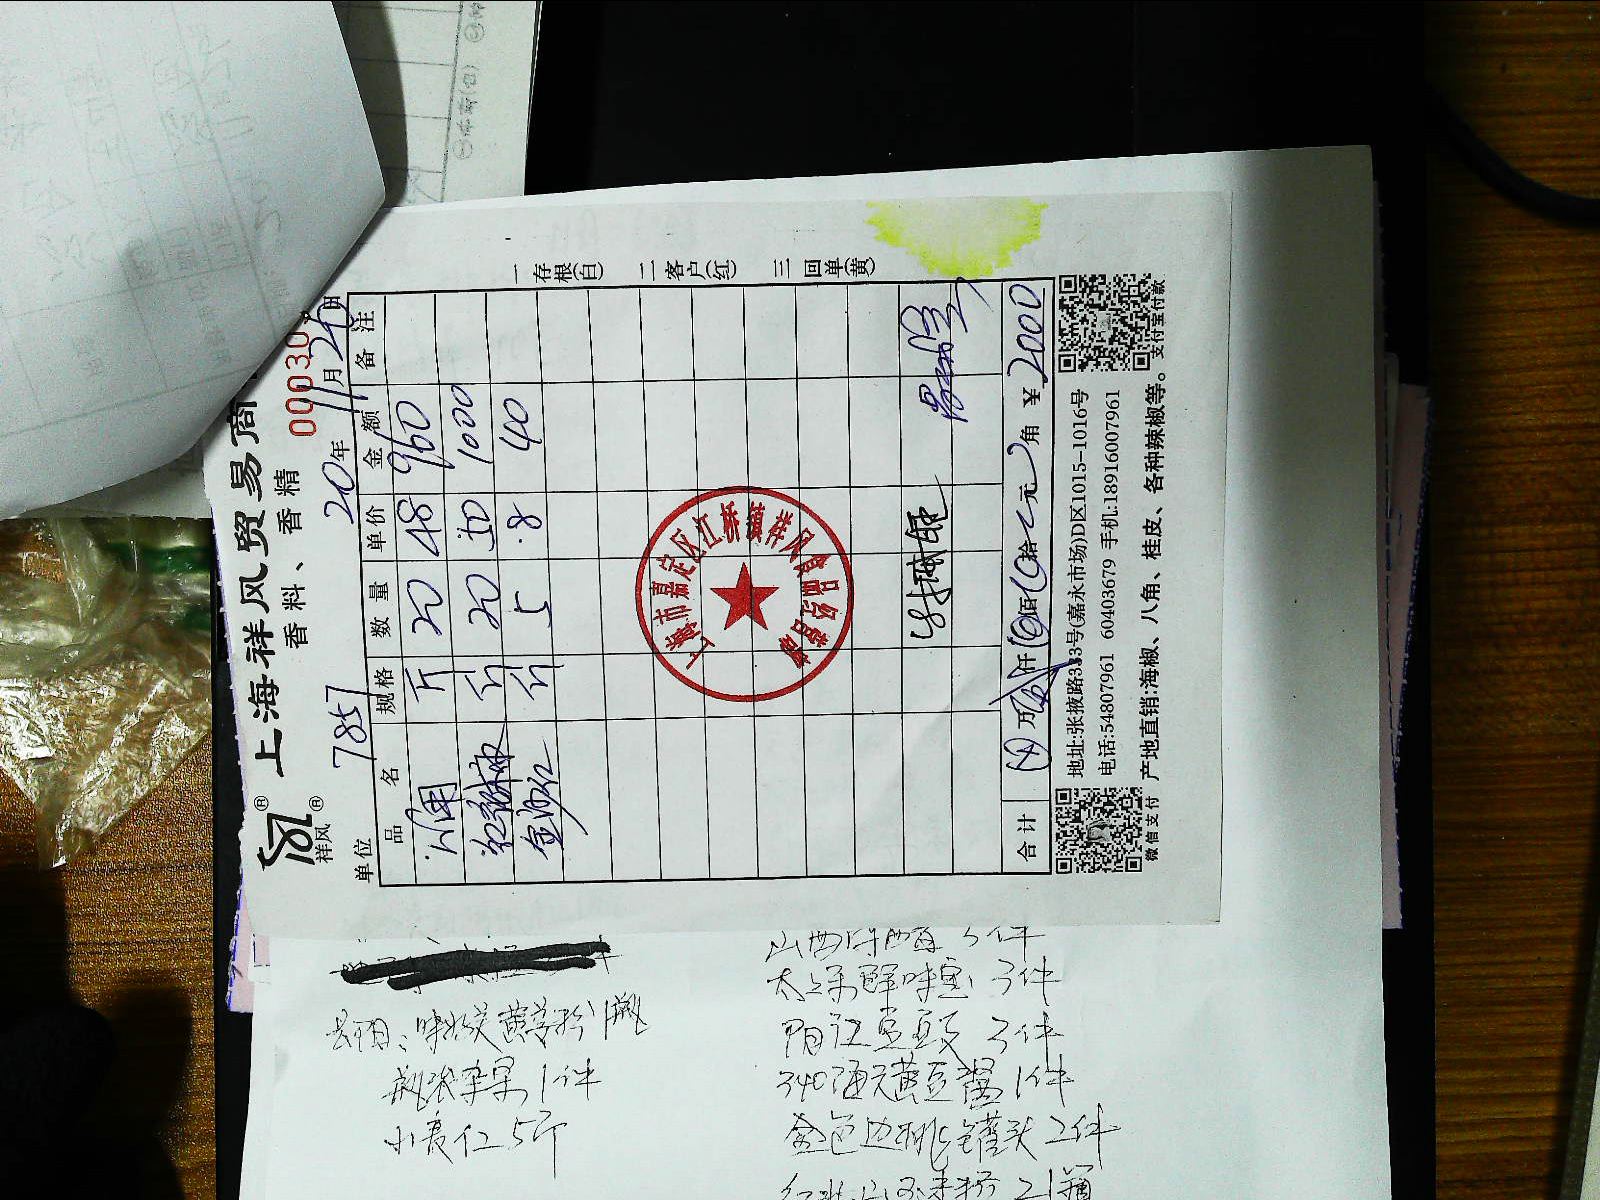 上海祥风贸易商
祥风
香料、香精
000030
单位 7857 20年11月26日
品名 规格 数量 单价 金额 备注
斤 20 48 960
红麻椒 斤 20 50 1000
斤 5 8 40
一存根(白) 二客户(红) 三回单(黄)
上海市嘉定区江桥镇祥风食品经营部
合计 万 仟 佰 拾 元 角 ¥ 2000
地址:张掖路333号(嘉永市场)D区1015-1016号
电话:54807961 60403679 手机:18916007961
产地直销:海椒、八角、桂皮、各种辣椒等。
微信支付
支付宝付款
味好美黄姜粉1瓶
瓶装苹果1件
小麦仁5斤
山西陈醋3件
太太乐鲜味宝3件
阳江豆豉3件
340海天黄豆酱1件
金色边桃罐头2件